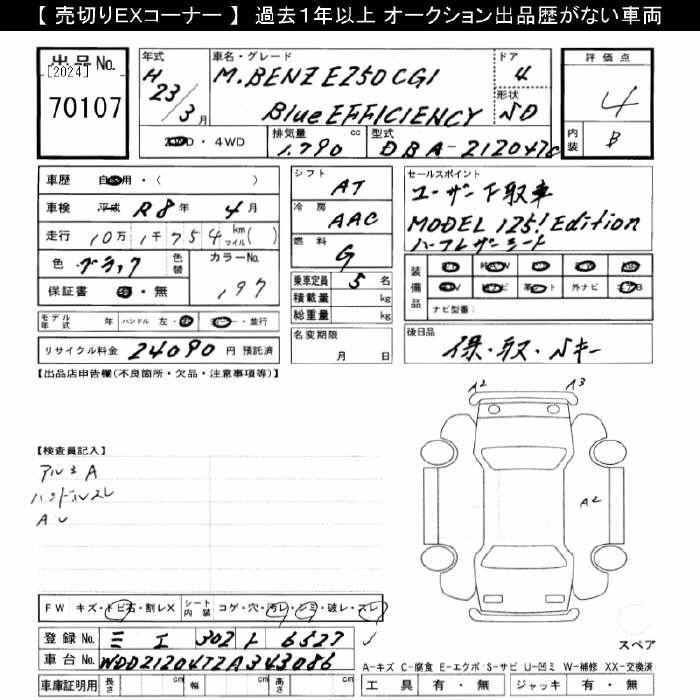 【 売切りEXコーナー 】 過去1年以上 オークション出品歴がない車両
出品 No.
[2024]
70107
年式
H 23/3 月
車名・グレード
M.BENZ E250 CGI
Blue EFFICIENCY
ドア
4
形状
SD
評価点
4
内装
B
2WD・4WD
排気量
1.790 cc
型式
DBA-212047C
車歴 自家用・( )
車検 平成 R8 年 4 月
走行 10万 1千 754 km マイル( )
色 ブラック 色替
カラーNo.
197
保証書 有・無
モデル年式 年 ハンドル 左・右 ・並行
リサイクル料金 24090 円 預託済
シフト
AT
冷房
AAC
燃料
G
乗車定員 5 名
積載量 kg
総重量 kg
名変期限
月 日
セールスポイント
ユーザー下取車
MODEL 125! Edition
ハーフレザーシート
装備品
ナビ 革シート 外ナビ
ナビ型番：
後日品
保・取・Sキー
【出品店申告欄(不良箇所・欠品・注意事項等)】
【検査員記入】
アルミ A
ハンドルスレ
A U
A2
A3
A2
FW キズ・トビ石・割レX シート内装 コゲ・穴・汚レ・シミ・破レ・スレ
登録 No. 三重 302 ト 6527
車台 No. WDD2120472A343086
車庫証明用 長さ cm 幅 cm 高さ cm
スペア
A-キズ C-腐食 E-エクボ S-サビ U-凹ミ W-補修 XX-交換済
工具 有・無 ジャッキ 有・無